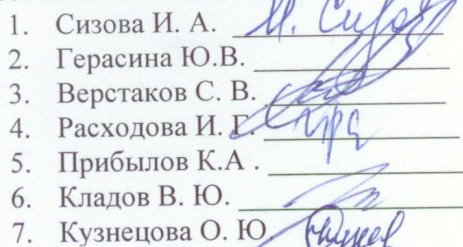 1. Сизова И. А.
2. Герасина Ю.В.
3. Верстаков С. В.
4. Расходова И. Г.
5. Прибылов К.А .
6. Кладов В. Ю.
7. Кузнецова О. Ю